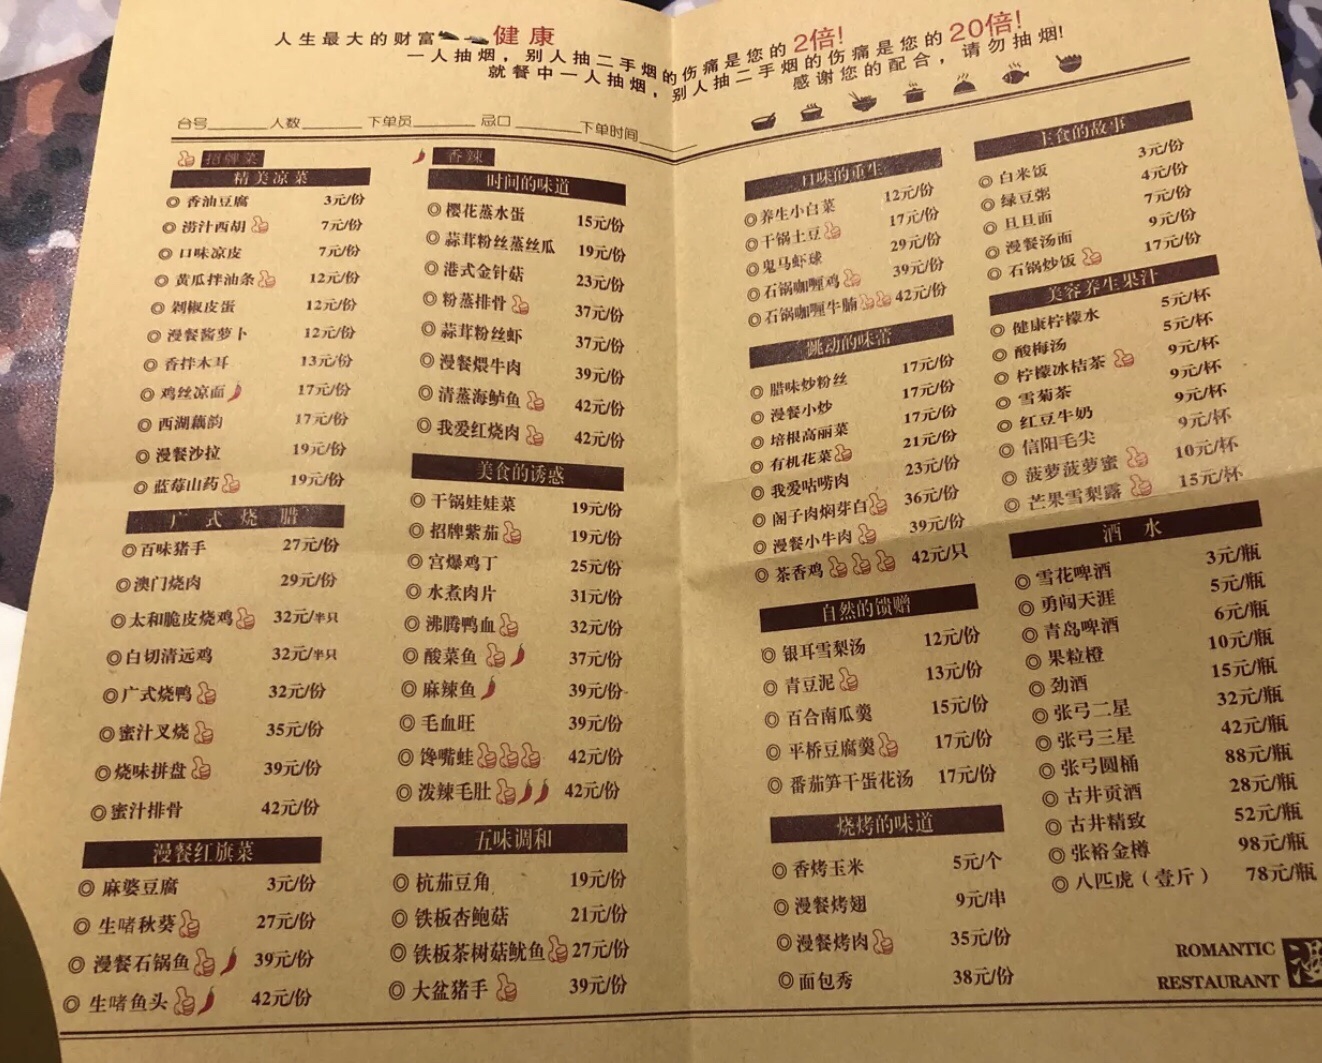 人生最大的财富 健康
一人抽烟，别人抽二手烟的伤痛是您的2倍!
就餐中一人抽烟，别人抽二手烟的伤痛是您的20倍!
感谢您的配合，请勿抽烟!
台号 人数 下单员 忌口 下单时间
招牌菜
香辣
精美凉菜
香油豆腐 3元/份
捞汁西胡 7元/份
口味凉皮 7元/份
黄瓜拌油条 12元/份
剁椒皮蛋 12元/份
漫餐酱萝卜 12元/份
香拌木耳 13元/份
鸡丝凉面 17元/份
西湖藕韵 17元/份
漫餐沙拉 19元/份
蓝莓山药 19元/份
广式烧腊
百味猪手 27元/份
澳门烧肉 29元/份
太和脆皮烧鸡 32元/半只
白切清远鸡 32元/半只
广式烧鸭 32元/份
蜜汁叉烧 35元/份
烧味拼盘 39元/份
蜜汁排骨 42元/份
漫餐红旗菜
麻婆豆腐 3元/份
生啫秋葵 27元/份
漫餐石锅鱼 39元/份
生啫鱼头 42元/份
时间的味道
樱花蒸水蛋 15元/份
蒜茸粉丝蒸丝瓜 19元/份
港式金针菇 23元/份
粉蒸排骨 37元/份
蒜茸粉丝虾 37元/份
漫餐煨牛肉 39元/份
清蒸海鲈鱼 42元/份
我爱红烧肉 42元/份
美食的诱惑
干锅娃娃菜 19元/份
招牌紫茄 19元/份
宫爆鸡丁 25元/份
水煮肉片 31元/份
沸腾鸭血 32元/份
酸菜鱼 37元/份
麻辣鱼 39元/份
毛血旺 39元/份
馋嘴蛙 42元/份
泼辣毛肚 42元/份
五味调和
杭茄豆角 19元/份
铁板杏鲍菇 21元/份
铁板茶树菇鱿鱼 27元/份
大盆猪手 39元/份
口味的重生
养生小白菜 12元/份
干锅土豆 17元/份
鬼马虾球 29元/份
石锅咖喱鸡 39元/份
石锅咖喱牛腩 42元/份
跳动的味蕾
腊味炒粉丝 17元/份
漫餐小炒 17元/份
培根高丽菜 17元/份
有机花菜 21元/份
我爱咕唠肉 23元/份
阁子肉焖芽白 36元/份
漫餐小牛肉 39元/份
茶香鸡 42元/只
自然的馈赠
银耳雪梨汤 12元/份
青豆泥 13元/份
百合南瓜羹 15元/份
平桥豆腐羹 17元/份
番茄笋干蛋花汤 17元/份
烧烤的味道
香烤玉米 5元/个
漫餐烤翅 9元/串
漫餐烤肉 35元/份
面包秀 38元/份
主食的故事
白米饭 3元/份
绿豆粥 4元/份
旦旦面 7元/份
漫餐汤面 9元/份
石锅炒饭 17元/份
美容养生果汁
健康柠檬水 5元/杯
酸梅汤 5元/杯
柠檬冰桔茶 9元/杯
雪菊茶 9元/杯
红豆牛奶 9元/杯
信阳毛尖 9元/杯
菠萝菠萝蜜 10元/杯
芒果雪梨露 15元/杯
酒水
雪花啤酒 3元/瓶
勇闯天涯 5元/瓶
青岛啤酒 6元/瓶
果粒橙 10元/瓶
劲酒 15元/瓶
张弓二星 32元/瓶
张弓三星 42元/瓶
张弓圆桶 88元/瓶
古井贡酒 28元/瓶
古井精致 52元/瓶
张裕金樽 98元/瓶
八匹虎（壹斤） 78元/瓶
ROMANTIC
RESTAURANT